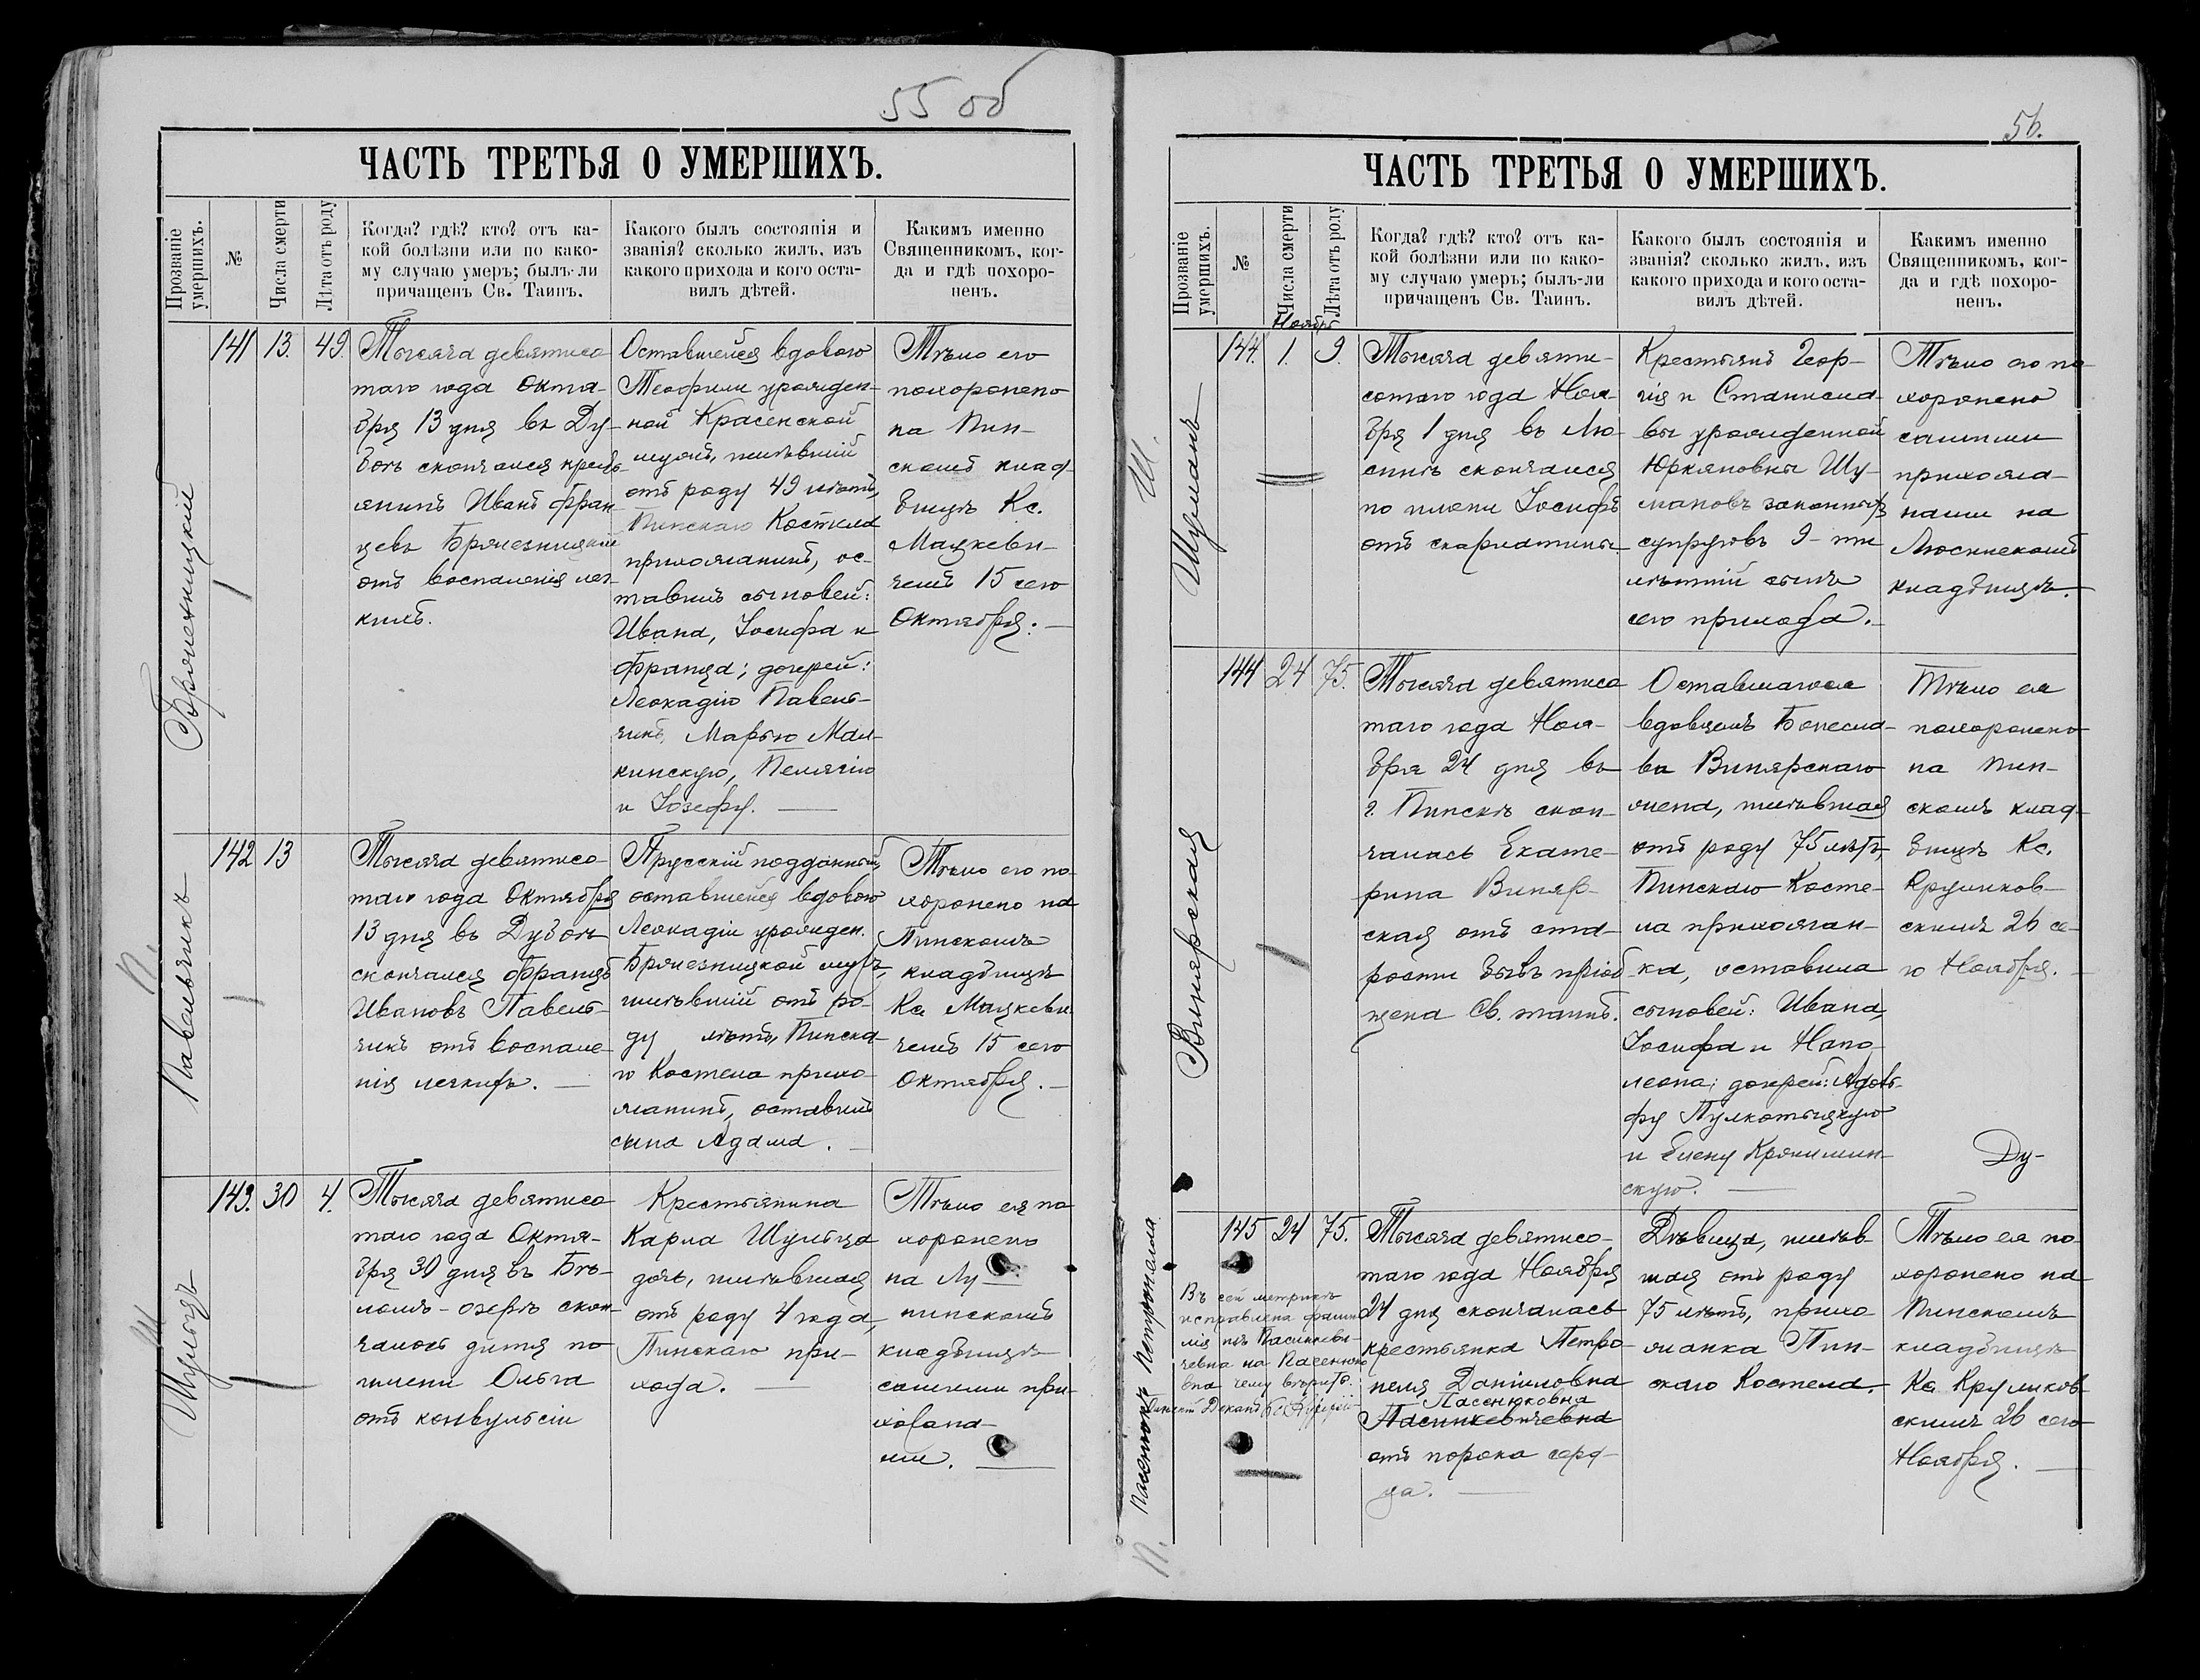 55 об
ЧАСТЬ ТРЕТЬЯ О УМЕРШИХЪ.
Прозваніе умершихъ.
№
Числа смерти
Лѣта отъ роду
Когда? гдѣ? кто? отъ ка-
кой болѣзни или по како-
му случаю умеръ; былъ-ли
причащенъ Св. Таинъ.
Какого былъ состоянія и
званія? сколько жилъ, изъ
какого прихода и кого оста-
вилъ дѣтей.
Какимъ именно
Священникомъ, ког-
да и гдѣ похоро-
ненъ.
141
13.
49.
Тысяча девятисо
таго года Октя-
бря 13 дня въ Ду-
боѣ скончался крест-
янинъ Иванъ Фран-
цевъ
отъ воспаленія лег-
кихъ.
Оставшейся вдовою
Теофили урожден-
ной Красенской
мужъ, жившій
отъ роду 49 лѣтъ,
Пинскаго Костела
прихожанинъ, ос-
тавилъ сыновей:
Ивана, Іосифа и
Франца; дочерей:
Леокадію Павель-
чикъ, Марью Мал-
кинскую, Пелагію
и Іозефу.
Тѣло его
похоронено
на Пин-
скомъ клад-
бищѣ Кс.
Мацкеви-
чемъ 15 сего
Октября.
П.
Павельчикъ
142
13
Тысяча девятисо-
таго года Октября
13 дня въ Дубоѣ
скончался Францъ
Ивановъ Павель-
чикъ отъ воспале-
нія легкихъ.
Прусскій подданный,
оставшейся вдовою
Леокадіи урожден.
мужъ,
жившій отъ ро-
ду лѣтъ, Пинска-
го Костела прихо-
жанинъ, оставилъ
сына Адама.
Тѣло его по-
хоронено на
Пинскомъ
кладбищѣ
Кс. Мацкеви-
чемъ 15 сего
Октября.
Ш
Шульцъ
143.
30
4.
Тысяча девятисо
таго года Октя-
бря 30 дня въ Бѣ-
ломъ-озерѣ скон-
чалось дитя по
имени Ольга
отъ конвульсіи
Крестьянина
Карла Шульца
дочь, жившая
отъ роду 4 года,
Пинскаго при-
хода.
Тѣло ея по
хоронено
на Лу-
нинскомъ
кладбищѣ
самими при-
хожана-
ми.
56.
ЧАСТЬ ТРЕТЬЯ О УМЕРШИХЪ.
Прозваніе умершихъ.
№
Числа смерти
Лѣта отъ роду
Когда? гдѣ? кто? отъ ка-
кой болѣзни или по како-
му случаю умеръ; былъ-ли
причащенъ Св. Таинъ.
Какого былъ состоянія и
званія? сколько жилъ, изъ
какого прихода и кого оста-
вилъ дѣтей.
Какимъ именно
Священникомъ, ког-
да и гдѣ похоро-
ненъ.
Ноябрь
Ш.
Шуманъ
144.
1.
9.
Тысяча девяти-
сотаго года Ноя-
бря 1 дня въ Лю-
синѣ скончался
по имени Іосифъ
отъ скарлатины
Крестьянъ Геор-
гія и Станисла-
вы урожденной
Юркяновны Шу-
мановъ законныхъ
супруговъ 9-ти
лѣтній сынъ
сего прихода.
Тѣло его по-
хоронено
самими
прихожа-
нами на
Люсинскомъ
кладбищѣ.
Винярская
144
24
75.
Тысяча девятисо
таго года Ноя-
бря 24 дня въ
г. Пинскѣ скон-
чалась Екате-
рина Виняр-
ская отъ ста-
рости бывъ пріоб-
щена Св. таинъ.
Оставшагося
вдовцемъ Болесла-
ва Винярскаго
жена, жившая
отъ роду 75 лѣтъ,
Пинскаго Косте-
ла прихожан-
ка, оставила
сыновей: Ивана,
Іосифа и Напо-
леона; дочерей: Адоль-
фу
и Елену
скую.
Тѣло ея
похоронено
на Пин-
скомъ клад-
бищѣ Кс.
Круликов-
скимъ 26 се-
го Ноября.
Ду-
П.
Пасенюкъ Петронелла
145
24
75.
Въ сей метрикѣ
исправлена фами
лія изъ Пасинкеви-
чевна на Пасенюко
вна чему вѣрить.
Пинскій Деканъ
Тысяча девятисо-
таго года Ноября
24 дня скончалась
крестьянка Петро-
неля Даніиловна
Пасенюковна
Пасинкевичевна
отъ порока серд-
ца.
Дѣвица, жив-
шая отъ роду
75 лѣтъ, прихо
жанка Пин-
скаго Костела.
Тѣло ея по-
хоронено на
Пинскомъ
кладбищѣ
Кс. Круликов
скимъ 26 сего
Ноября.